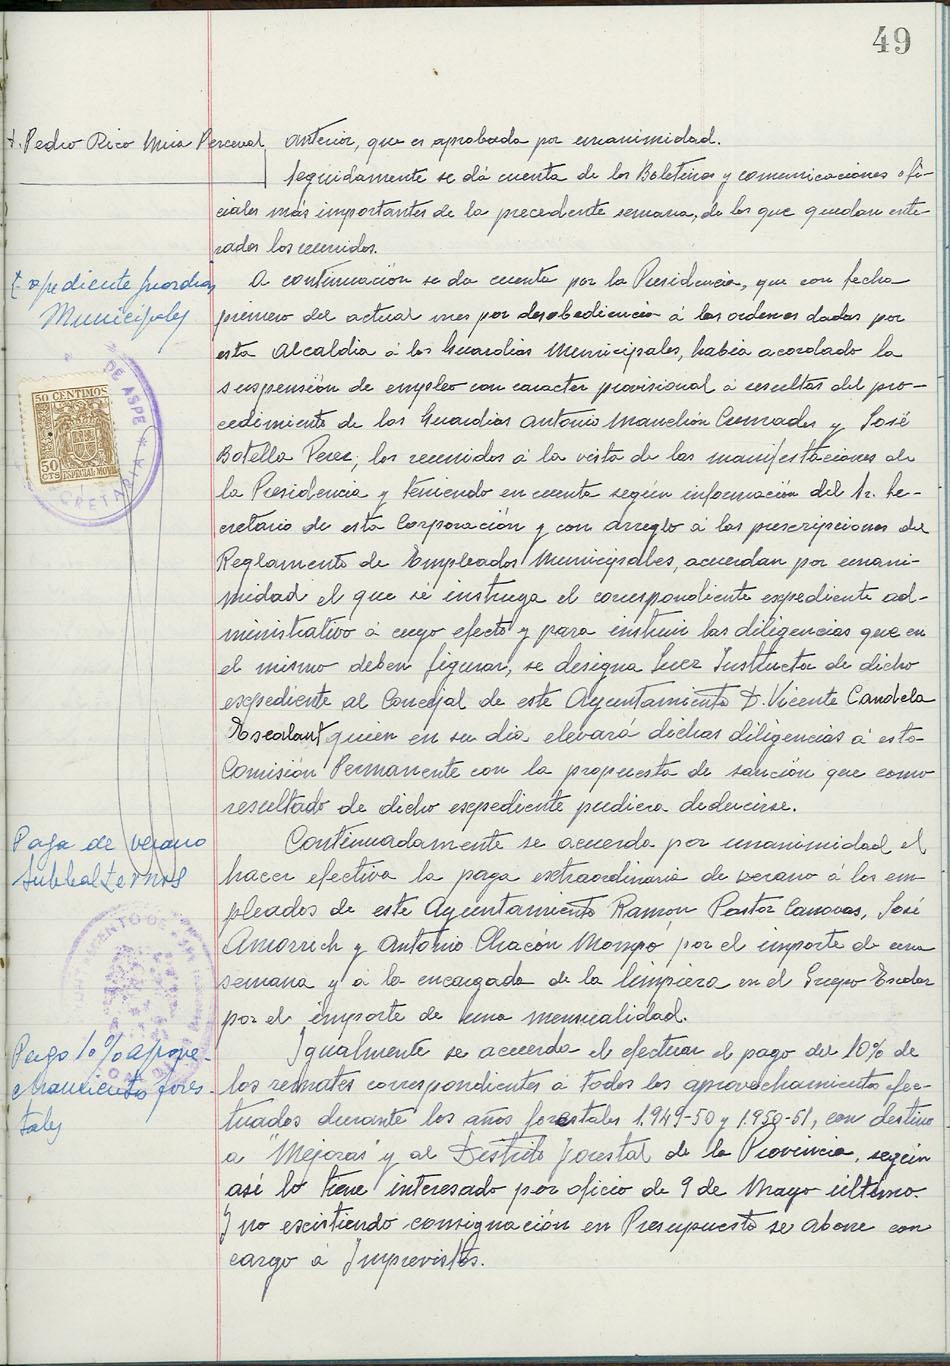 49
D. Pedro Rico Mira Perceval
anterior, que es aprobada por unanimidad.
Seguidamente se dá cuenta de los Boletines y comunicaciones ofi-
ciales más importantes de la precedente semana, de los que quedan ente-
rados los reunidos.
Expediente guardias
Municipales
A continuación se da cuenta por la Presidencia, que con fecha
primero del actual mes por desobediencia á las ordenes dadas por
esta Alcaldia á los Guardias Municipales, habia acordado la
suspensión de empleo con caracter provisional á resultas del pro-
cedimiento de los Guardias Antonio Manchón Cremades y José
Botella Perez, los reunidos á la vista de las manifestaciones de
la Presidencia y teniendo en cuenta según información del Sr. Se-
cretario de esta Corporación y con arreglo á las prescripciones del
Reglamento de Empleados Municipales, acuerdan por unani-
midad el que sé instruya el correspondiente expediente ad-
ministrativo á cuyo efecto y para instruir las diligencias que en
el mismo deben figurar, se designa Juez Instructor de dicho
expediente al Concejal de este Ayuntamiento D. Vicente Candela
Escalant quien en su dia elevará dichas diligencias á esta
Comisión Permanente con la propuesta de sanción que como
resultado de dicho expediente pudiera deducirse.
50 CENTIMOS
50 CTS
ESPECIAL MOVIL
DE ASPE
SECRETARIA
Paga de verano
Subbalternos
Continuadamente se acuerda por unanimidad el
hacer efectiva la paga extraordinaria de verano á los em-
pleados de este Ayuntamiento Ramon Pastor Canovas, José
Amorrich y Antonio Chacón Mompó por el importe de una
semana y á la encargada de la limpieza en el Grupo Escolar
por el importe de una mensualidad.
AYUNTAMIENTO DE
Pago 10% aprove-
chamientos fores-
tales
Igualmente se acuerda el efectuar el pago del 10% de
los remates correspondientes á todos los aprovechamientos efec-
tuados durante los años forestales 1.949-50 y 1.950-51, con destino
a "Mejoras" y al Distrito Forestal de la Provincia, según
asi lo tiene interesado por oficio de 9 de Mayo último.
Y no existiendo consignación en Presupuesto se abone con
cargo á Imprevistos.